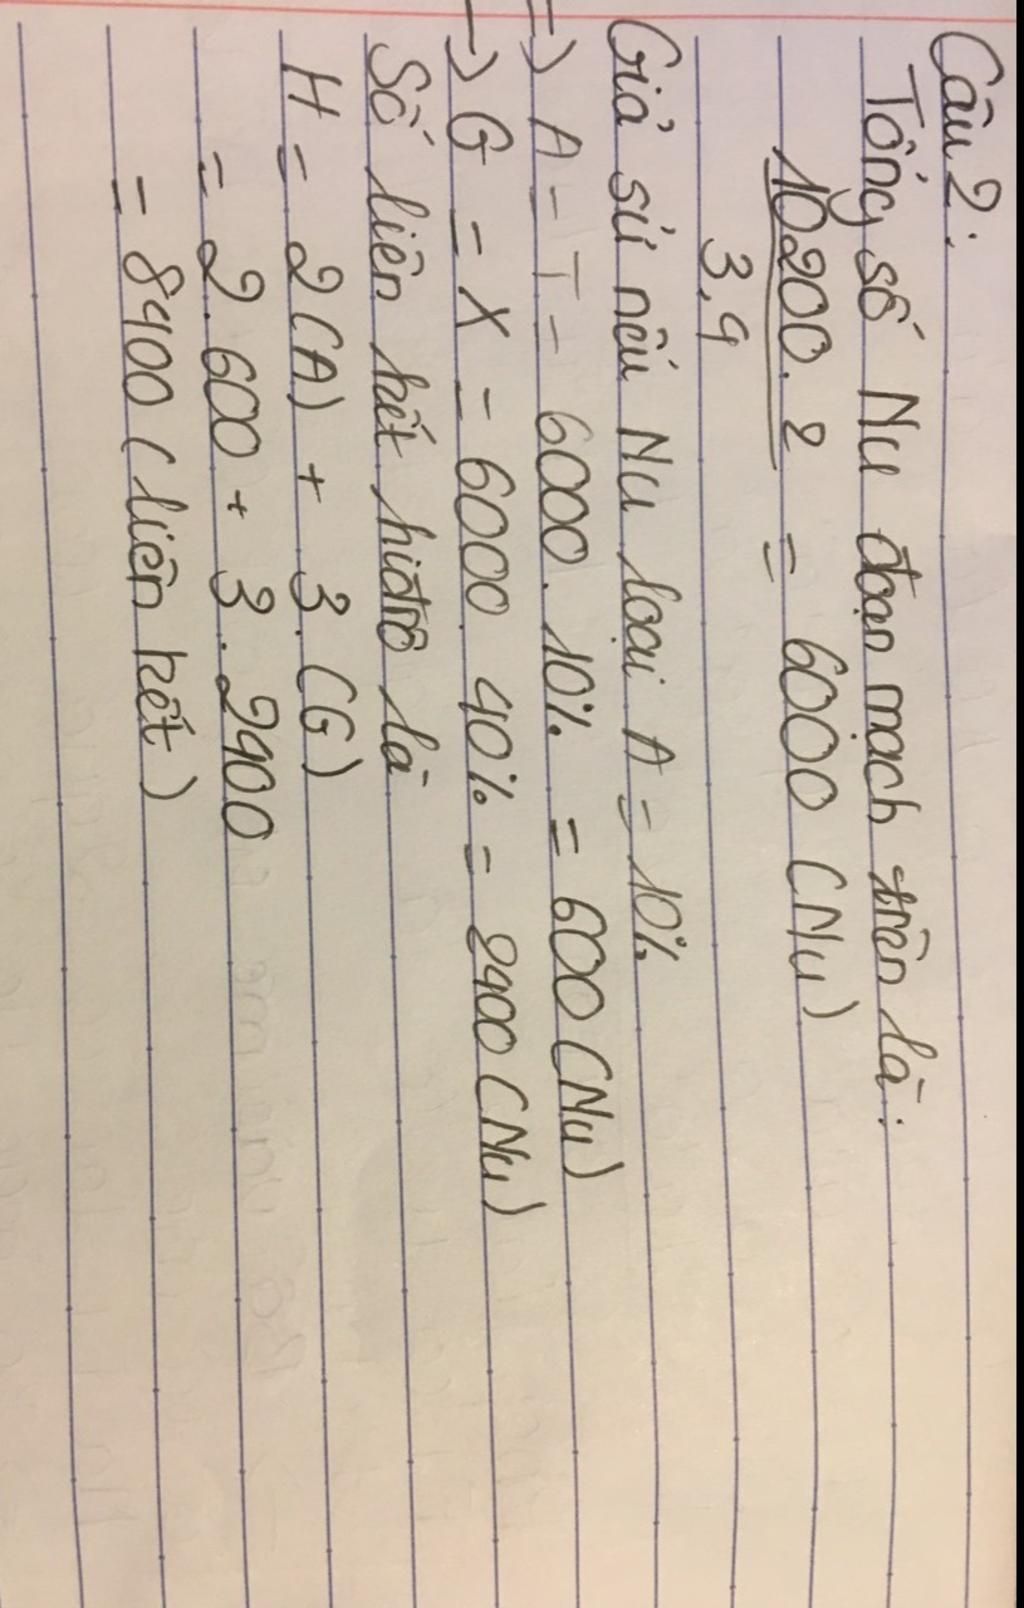 Câu 2:
Tổng số Nu đoạn mạch trên là:
10200.2 = 6000 (Nu)
3,4
Giả sử nếu Nu loại A = 10%
=> A = T = 6000.10% = 600 (Nu)
=> G = X = 6000.40% = 2400 (Nu)
Số liên kết hiđrô là
H = 2(A) + 3.(G)
= 2.600 + 3.2400
= 8400 (liên kết)